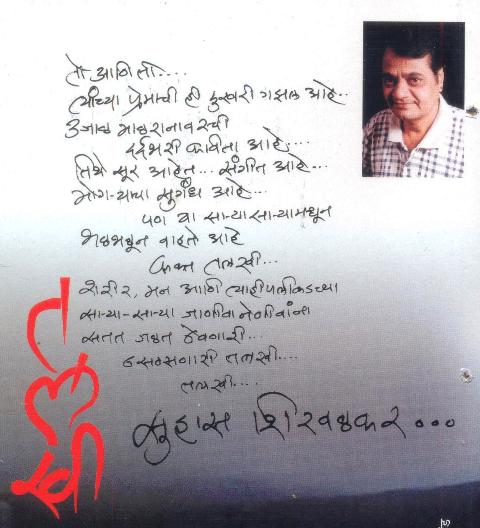 तो आणि ती....
त्यांच्या प्रेमाची ही दुखरी गझल आहे..
उजाड माळरानावरची
दर्दभरी कविता आहे....
तिथे सूर आहेत... संगीत आहे...
मोग-याचा सुगंध आहे...
पण या सा-या सा-यामधून
भळभळून वाहते आहे
फक्त तलखी...
शरीर, मन आणि त्याही पलीकडच्या
सा-या-सा-या जाणीवा नेणीवांना
सतत जळत ठेवणारी...
ठसठसणारी तलखी....
तलखी....
सुहास शिरवळकर...
तलखी